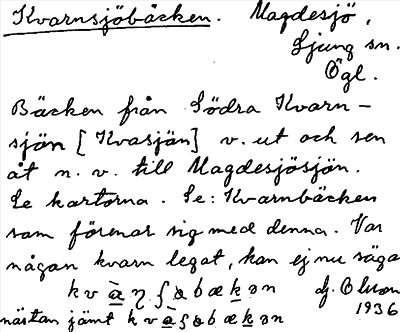 Kvarnsjöbäcken. Magdesjö,
Ljung sn.
Ögl.
Bäcken från Södra Kvarn-
sjön [Kvasjön] v. ut och sen
åt n. v. till Magdesjösjön.
Se kartorna. Se: Kvarnbäcken
som förenar sig med denna. Var
någan kvarn legat, kan ej nu säga
1936
nästan jämt